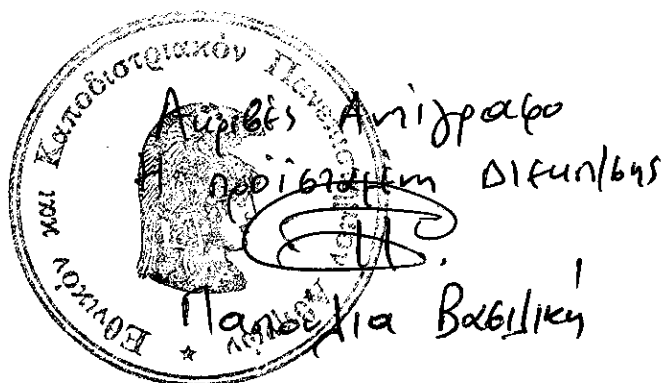 Εθνικόν και Καποδιστριακόν Πανεπιστήμιον Αθηνών
Ακριβές Αντίγραφο
Η προϊσταμένη Διεκπ/σης
Βασιλική